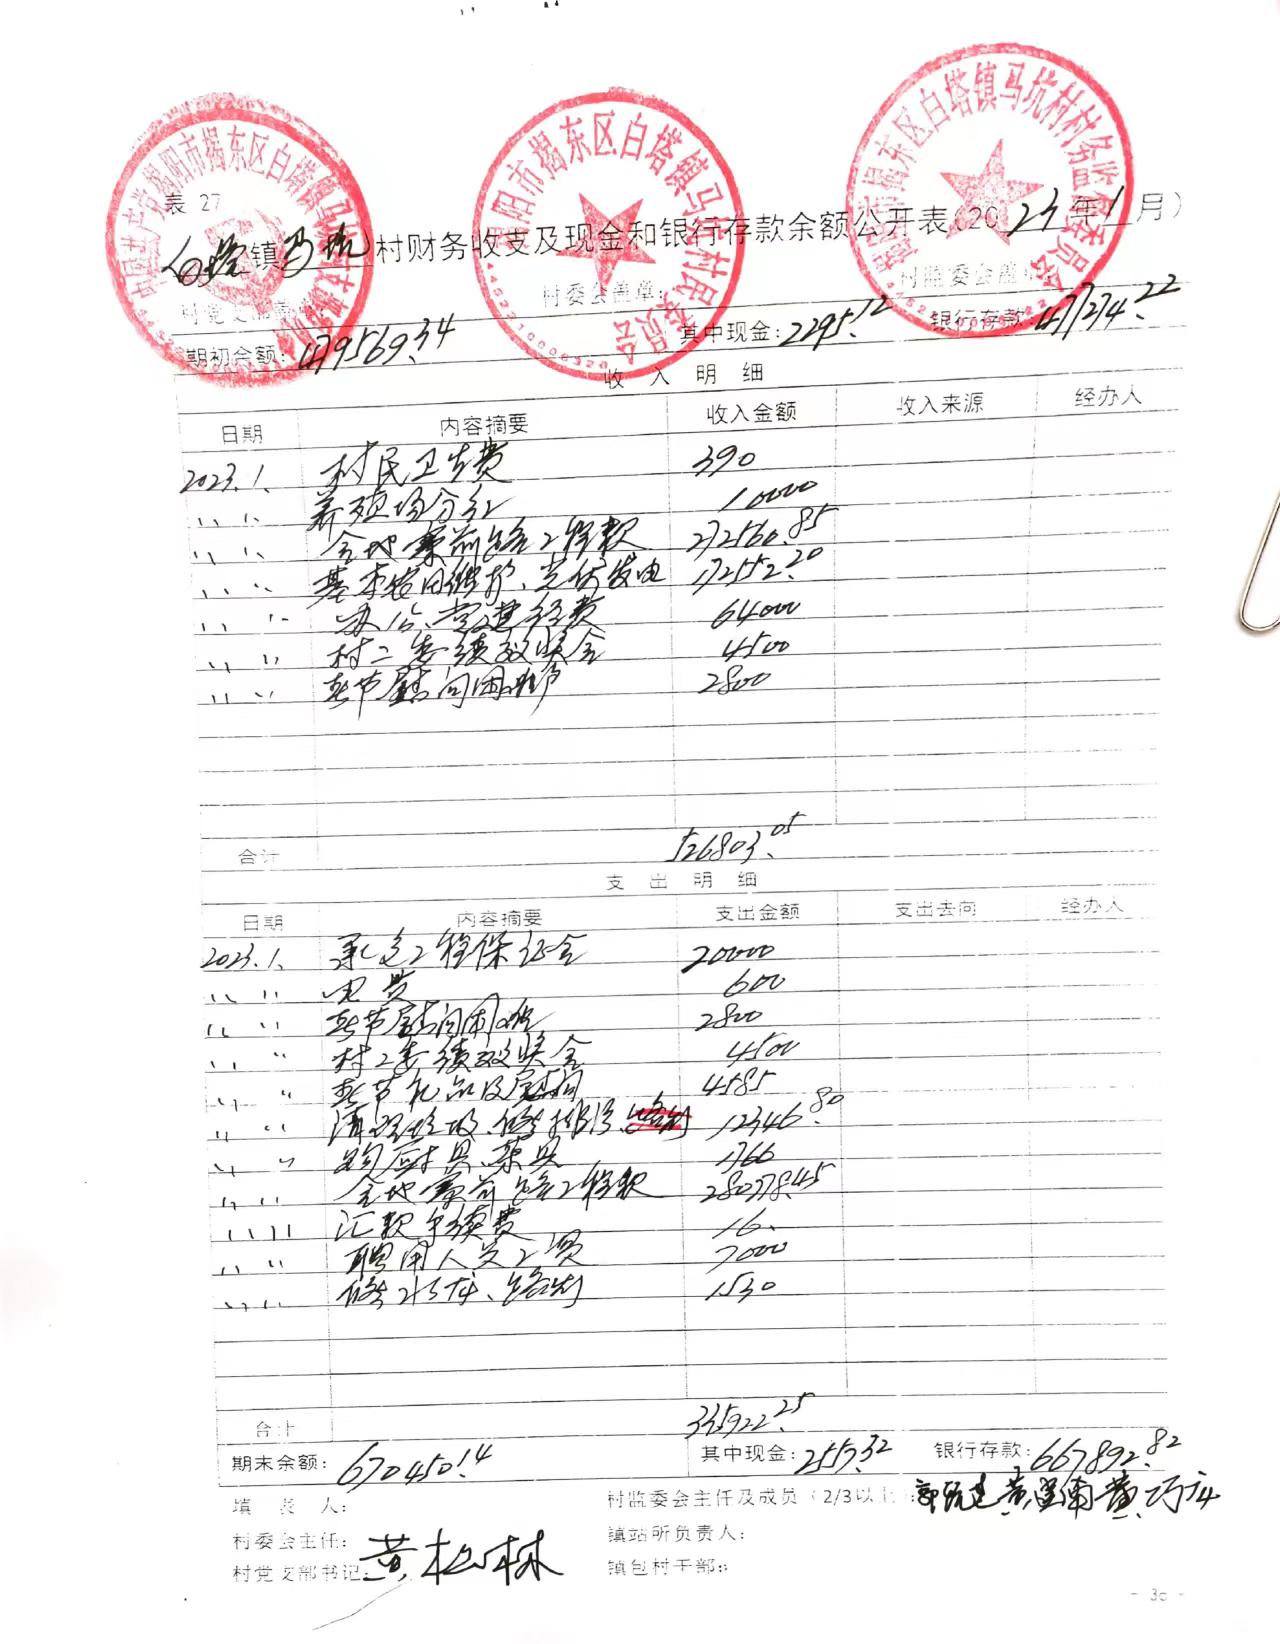 中国共产党揭阳市揭东区白塔镇马坑村支部
揭阳市揭东区白塔镇马坑村民委员会
揭阳市揭东区白塔镇马坑村村务监督委员会
表 27
白塔镇马坑村财务收支及现金和银行存款余额公开表(2023年1月)
村党支部盖章: 村委会盖章: 村监委会盖章:
期初余额: 479569.34 其中现金: 2295.12 银行存款: 477274.22
收 入 明 细
日期 内容摘要 收入金额 收入来源 经办人
2023.1. 村民卫生费 390
〃 〃 养殖场分红 10000
〃 〃 金地寨前路工程款 272560.85
〃 〃 基本农田维护、光伏发电 172552.20
〃 〃 办公、党建经费 64000
〃 〃 村二委绩效奖金 4500
〃 〃 春节慰问困难户 2800
合计 526803.05
支 出 明 细
日期 内容摘要 支出金额 支出去向 经办人
2023.1. 承包工程保证金 20000
〃 〃 电费 600
〃 〃 春节慰问困难 2800
〃 〃 村二委绩效奖金 4500
〃 〃 春节礼品及慰问 4585
〃 〃 清理垃圾、修排污、 12346.80
〃 〃 购厨具、茶具 1766
〃 〃 金地寨前路工程款 280778.45
〃 〃 汇款手续费 16.
〃 〃 聘用人员工资 7000
〃 〃 修水库、路灯 1530
合计 335922.25
期末余额: 670450.14 其中现金: 2557.32 银行存款: 667892.82
填 表 人: 村监委会主任及成员(2/3以上):
村委会主任: 镇站所负责人:
村党支部书记: 黄松林 镇包村干部: